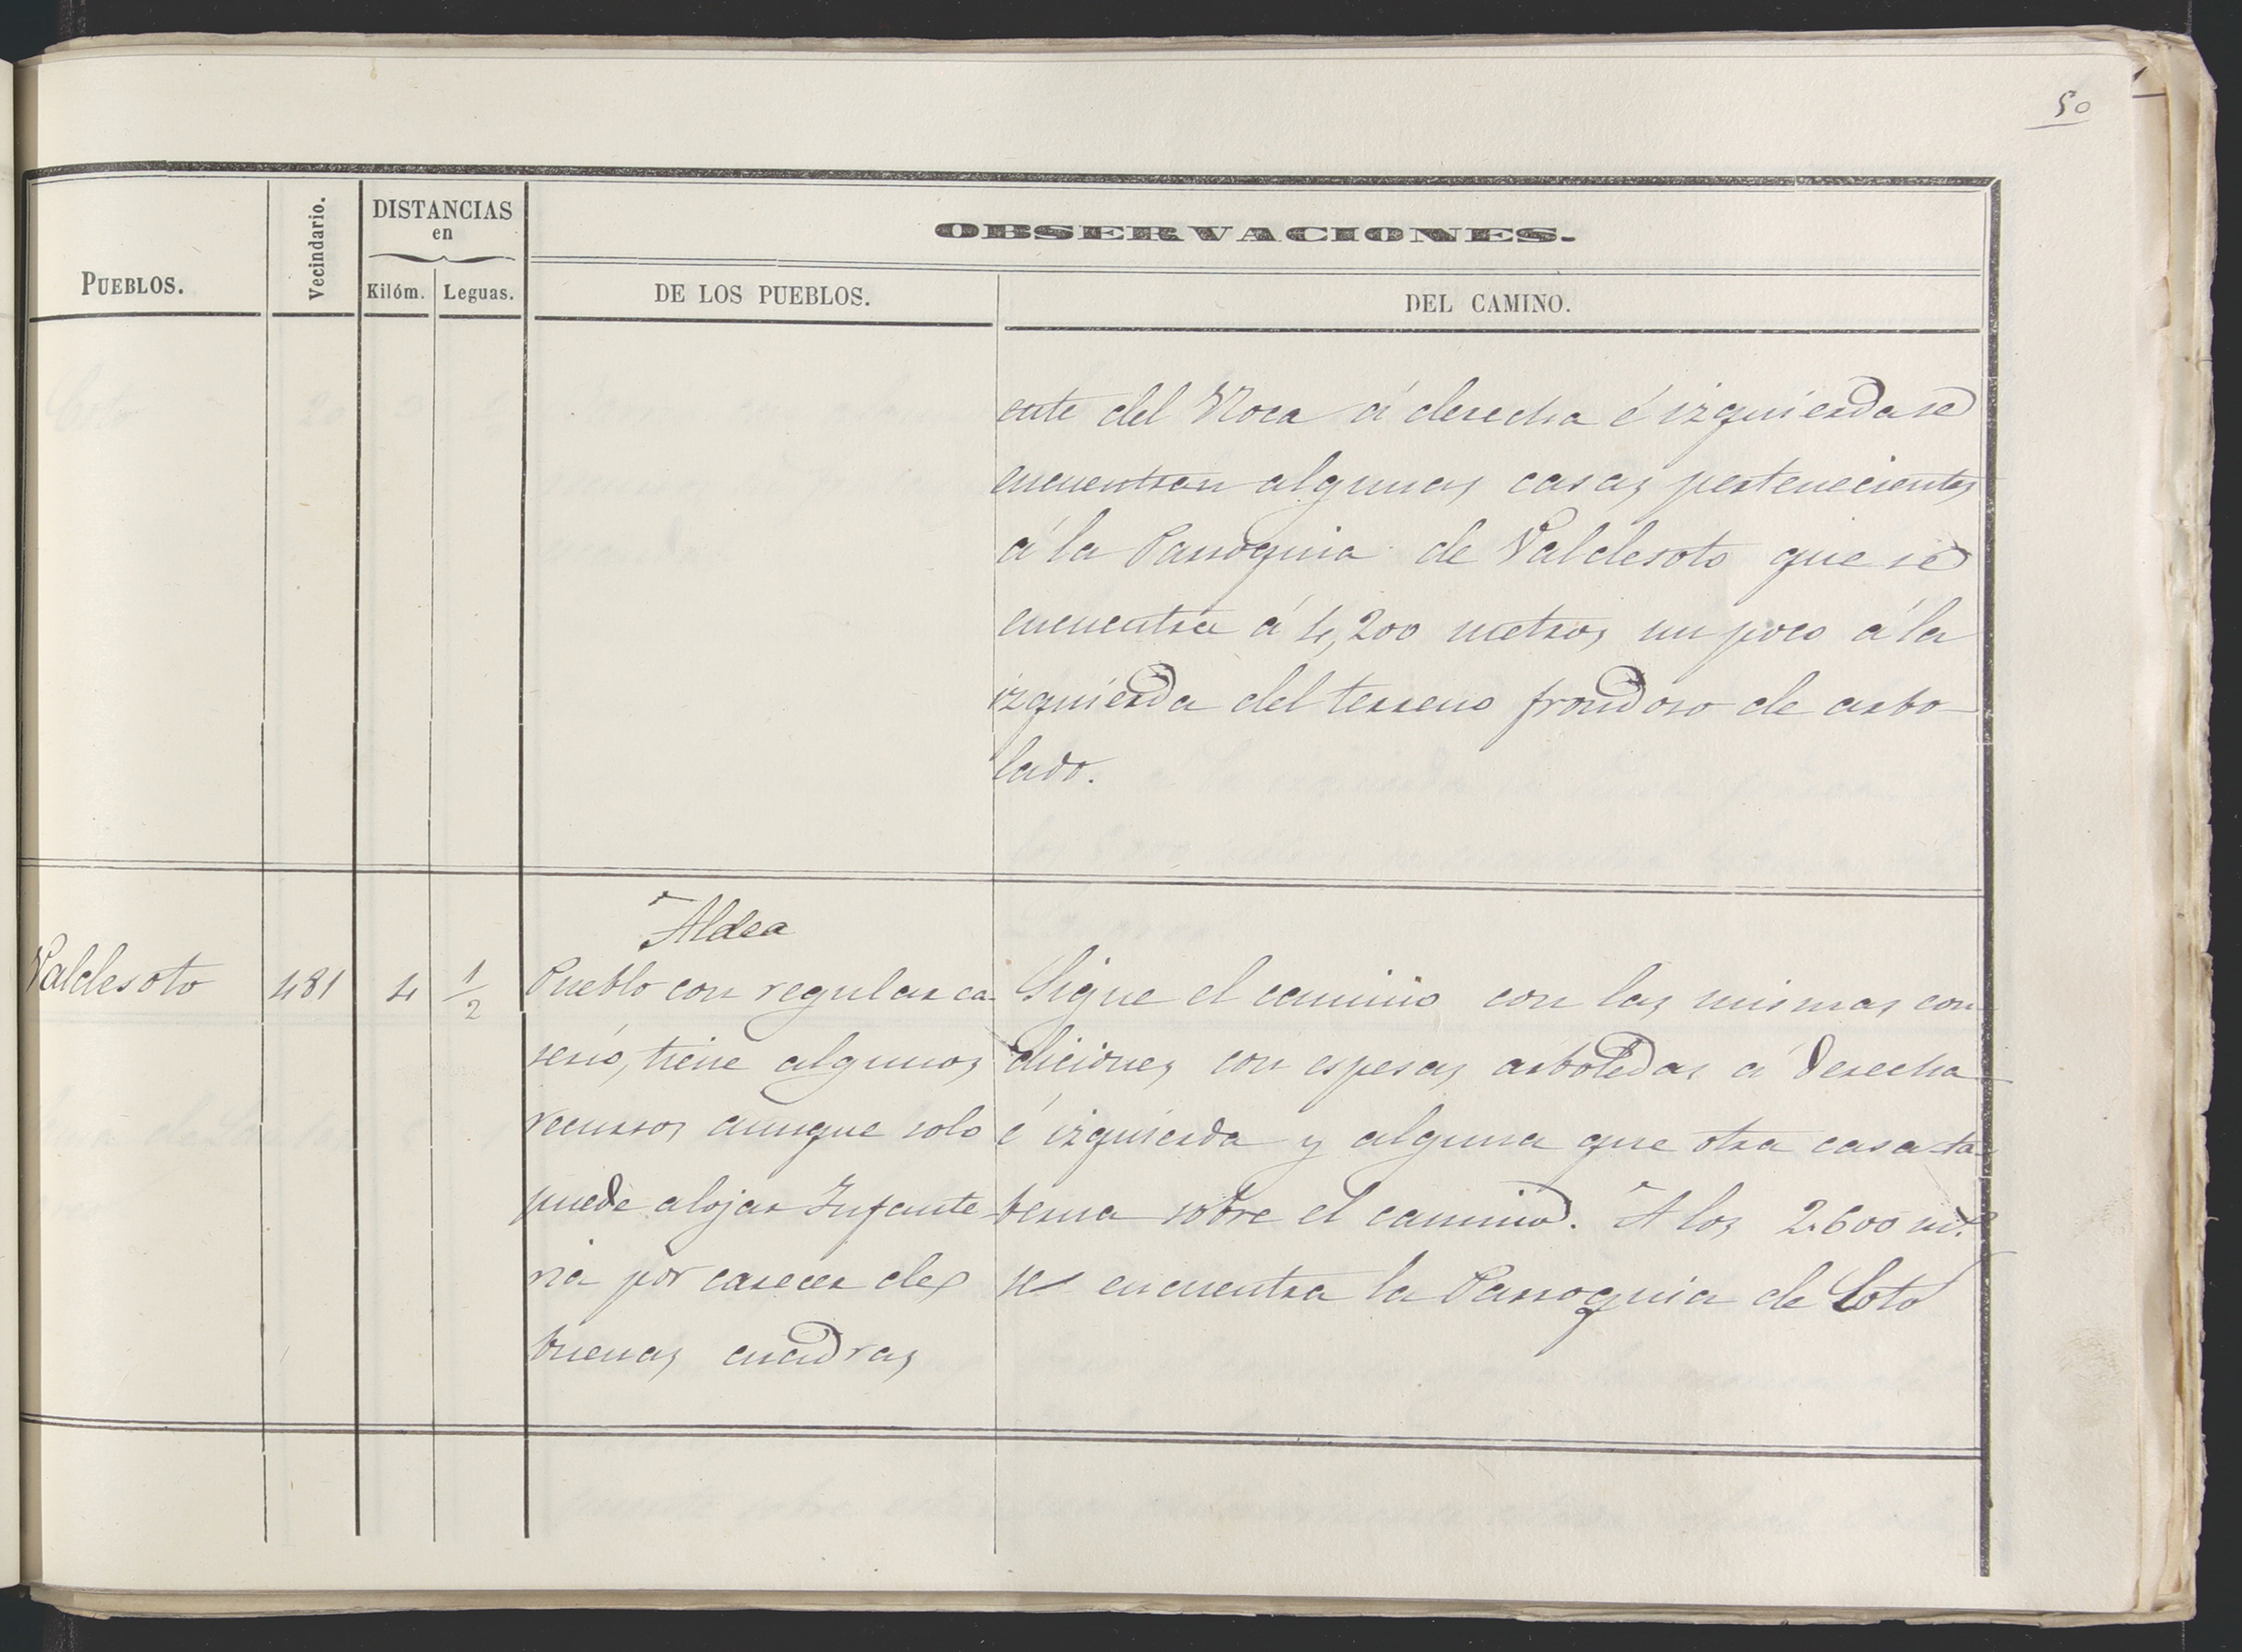 50
OBSERVACIONES.
PUEBLOS.
Vecindario.
DISTANCIAS
en
Kilóm. Leguas.
DE LOS PUEBLOS.
DEL CAMINO.
ente del Nora á derecha é izquierda se
encuentran algunas casas pertenecientes
á la Parroquia de Valdesoto que se
encuentra á 4,200 metros un poco á la
izquierda del terreno frondoso de arbo
lado.
Valdesoto 481 4 1/2
Aldea
Pueblo con regular ca-
serío, tiene algunos
recursos aunque solo
puede alojar Infante-
ria por carecer de
buenas cuadras
Sigue el camino con las mismas con
diciones con espesas arboledas á derecha
é izquierda y alguna que otra casa ta-
berna sobre el camino. A los 2.600 mt.s
se encuentra la Parroquia de Coto